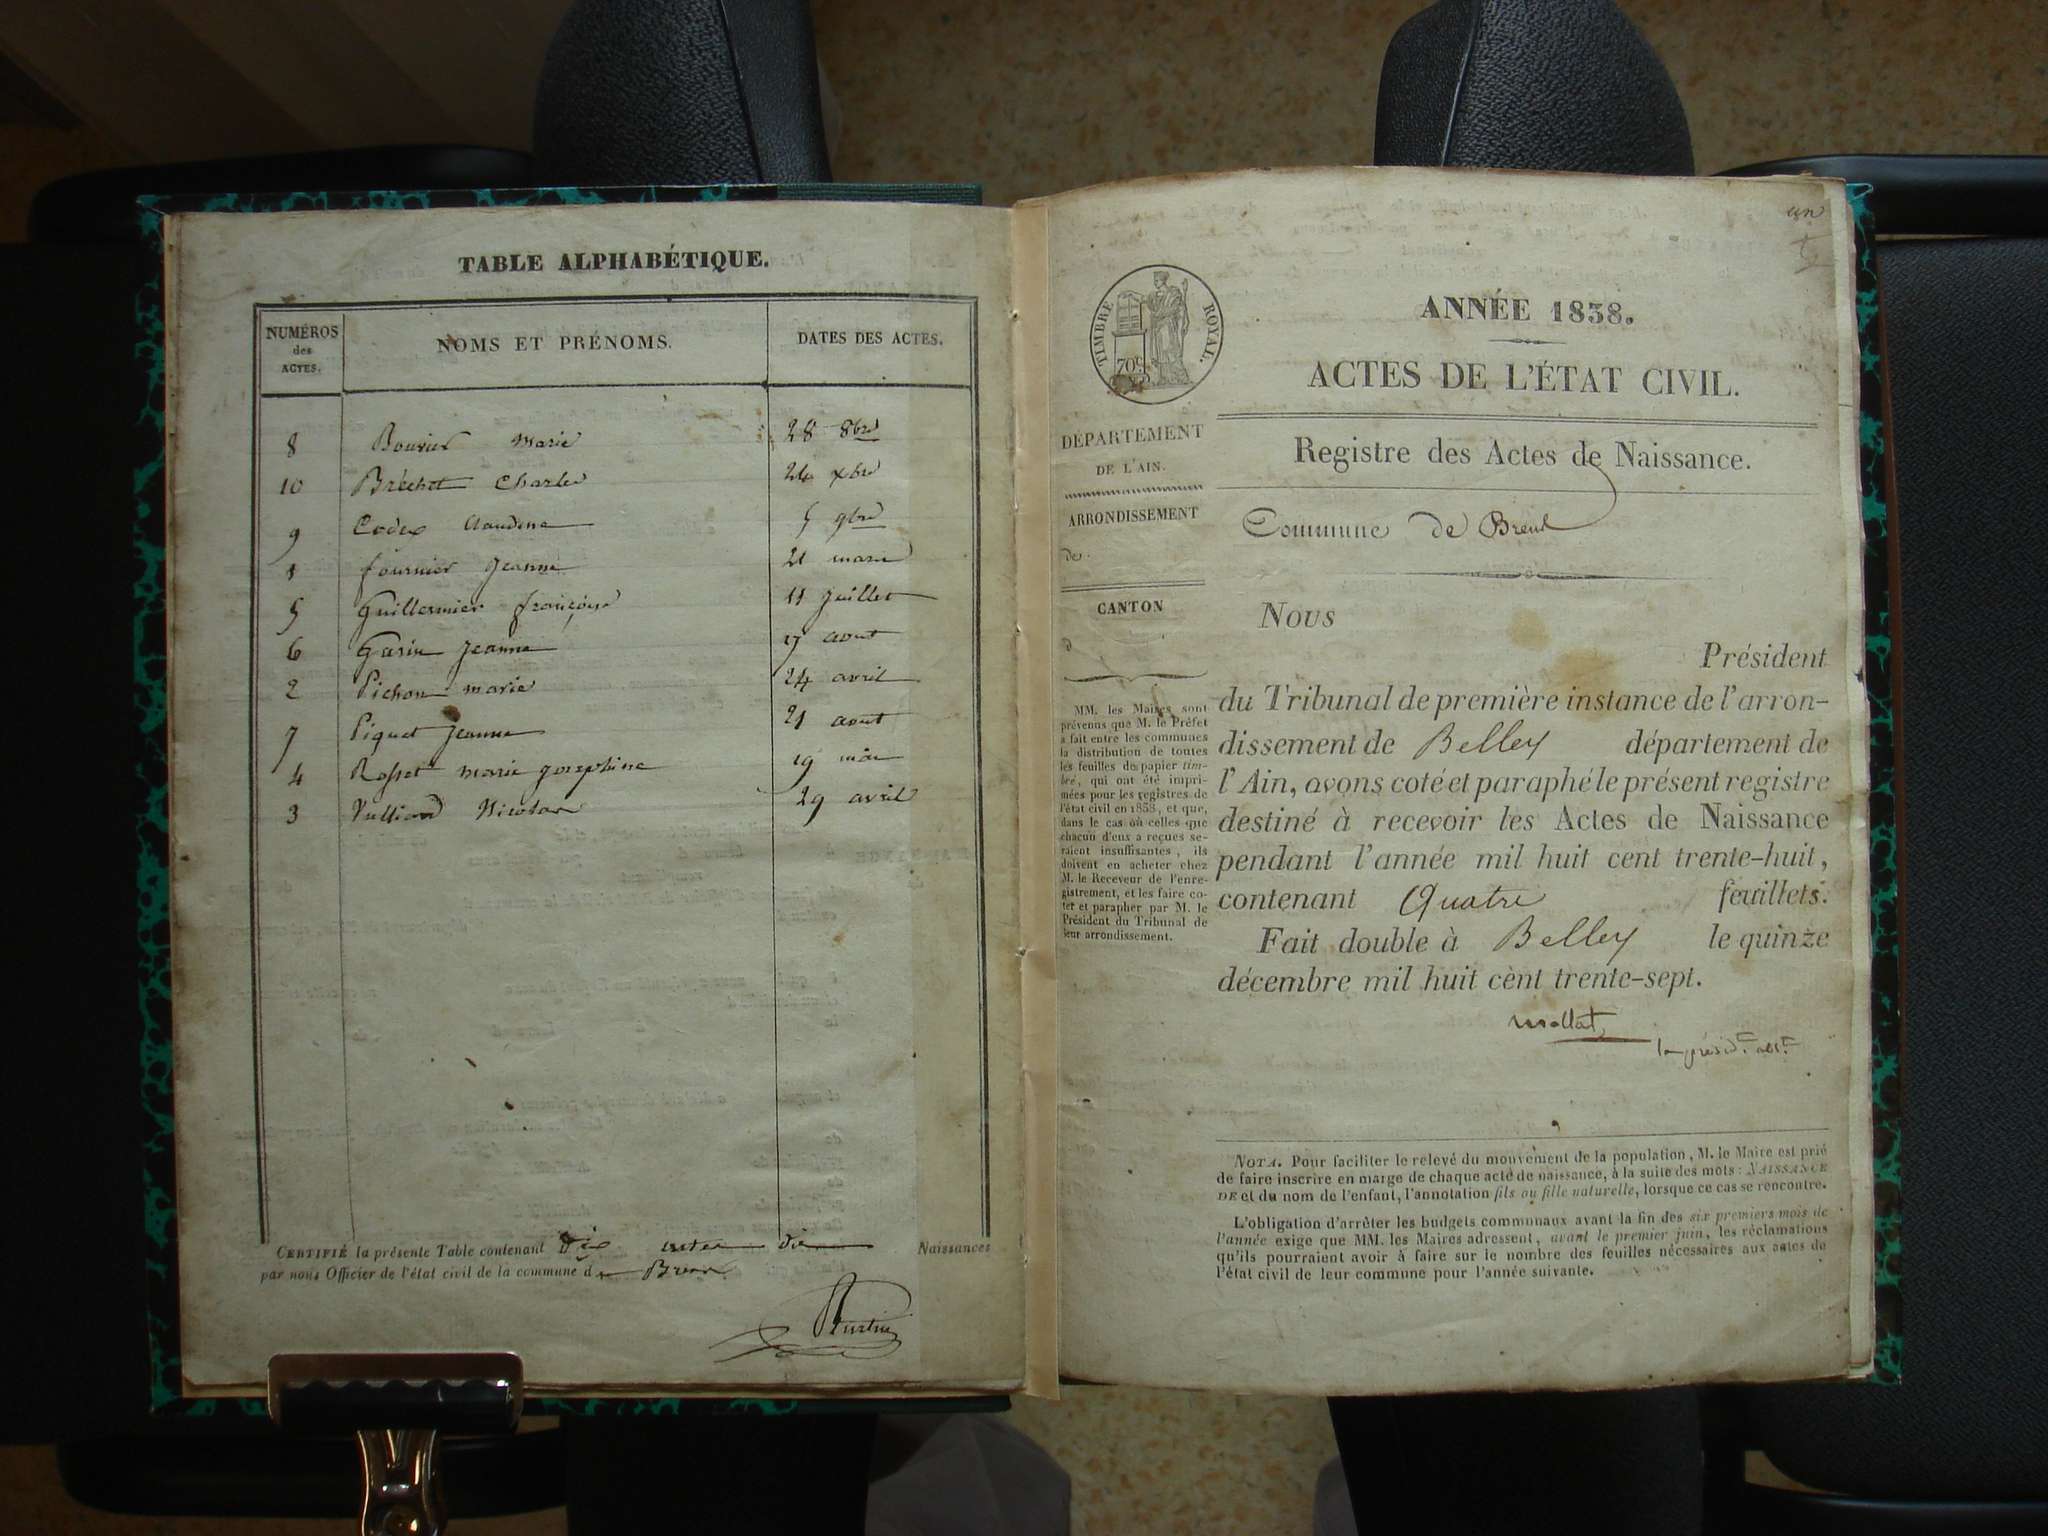 TABLE ALPHABÉTIQUE.
NUMÉROS des ACTES. NOMS ET PRÉNOMS. DATES DES ACTES.
8 Bouvier Marie 28 8bre
10 Bréchet Charles 24 xbre
9 Codex Claudine 5 9bre
1 fournier Jeanne 21 mars
5 Guillermier françoise 11 juillet
6 Garin Jeanne 17 aout
2 Pichon marie 24 avril
7 Piquet Jeanne 21 aout
4 Rosset marie josephine 19 mai
3 Vulliard Nicolas 29 avril
CERTIFIÉ la présente Table contenant Dix Naissances
par nous Officier de l'état civil de la commune de
un
TIMBRE ROYAL.
70c
ANNÉE 1838.
ACTES DE L'ÉTAT CIVIL.
DÉPARTEMENT
DE L'AIN.
ARRONDISSEMENT
de
CANTON
d
MM. les Maires sont
prévenus que M. le Préfet
a fait entre les communes
la distribution de toutes
les feuilles de papier tim-
bré, qui ont été impri-
mées pour les registres de
l'état civil en 1838, et que,
dans le cas où celles que
chacun d'eux a reçues se-
raient insuffisantes, ils
doivent en acheter chez
M. le Receveur de l'enre-
gistrement, et les faire co-
ter et parapher par M. le
Président du Tribunal de
leur arrondissement.
Registre des Actes de Naissance.
Commune de
Nous
Président
du Tribunal de première instance de l'arron-
dissement de Belley département de
l'Ain, avons coté et paraphé le présent registre
destiné à recevoir les Actes de Naissance
pendant l'année mil huit cent trente-huit,
contenant Quatre feuillets.
Fait double à Belley le quinze
décembre mil huit cènt trente-sept.
Mollat
NOTA. Pour faciliter le relevé du mouvement de la population, M. le Maire est prié
de faire inscrire en marge de chaque acte de naissance, à la suite des mots : NAISSANCE
DE et du nom de l'enfant, l'annotation fils ou fille naturelle, lorsque ce cas se rencontre.
L'obligation d'arrêter les budgets communaux avant la fin des six premiers mois de
l'année exige que MM. les Maires adressent, avant le premier juin, les réclamations
qu'ils pourraient avoir à faire sur le nombre des feuilles nécessaires aux actes de
l'état civil de leur commune pour l'année suivante.